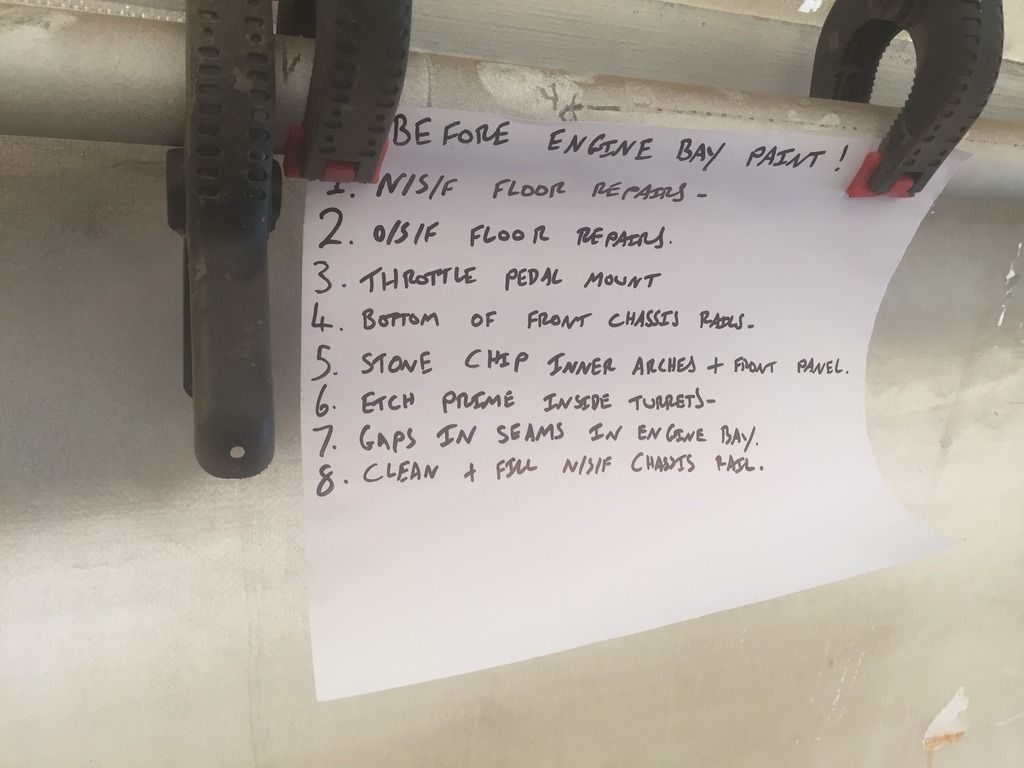 BEFORE ENGINE BAY PAINT!
1. N/S/F FLOOR REPAIRS-
2. O/S/F FLOOR REPAIRS.
3. THROTTLE PEDAL MOUNT
4. BOTTOM OF FRONT CHASSIS RAILS-
5. STONE CHIP INNER ARCHES + FRONT PANEL.
6. ETCH PRIME INSIDE TURRETS-
7. GAPS IN SEAMS IN ENGINE BAY.
8. CLEAN + FILL N/S/F CHASSIS RAIL.